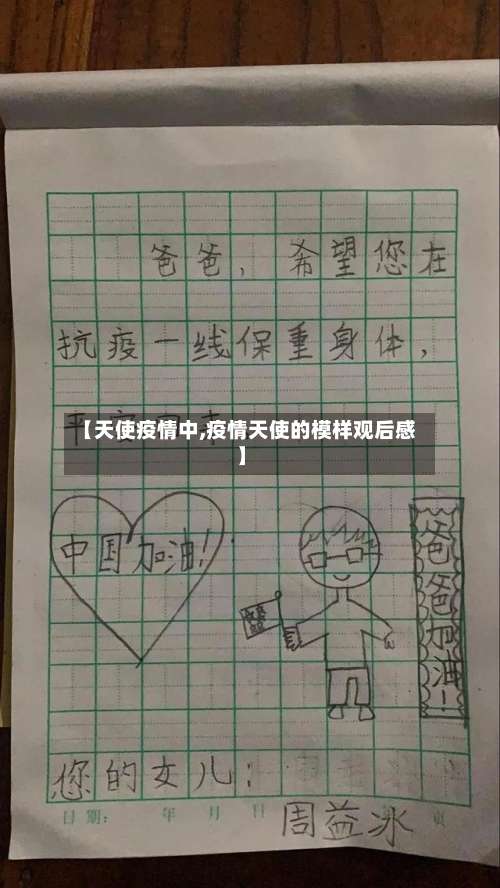 爸爸，希望您在
抗疫一线保重身体，
【天使疫情中,疫情天使的模样观后感
】
中国加油！
爸爸加油！
您的女儿：
周益冰
日期： 年 月 日
页